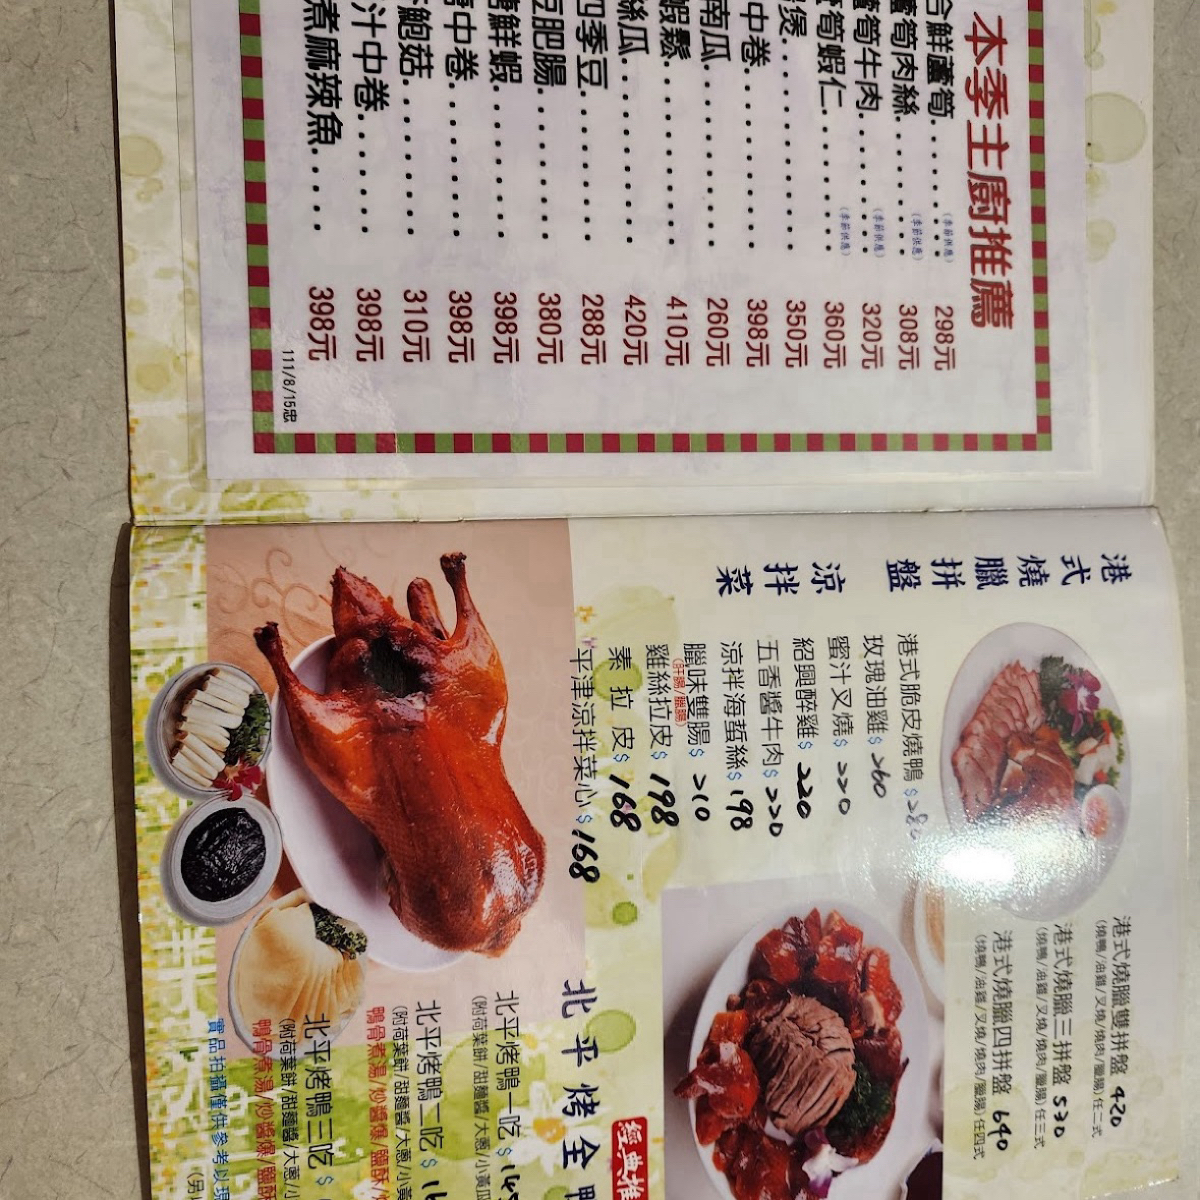 本季主廚推薦
合鮮蘆筍......(季節供應) 298元
蘆筍肉絲......(季節供應) 308元
蘆筍牛肉......(季節供應) 320元
蘆筍蝦仁......(季節供應) 360元
煲............ 350元
中卷......... 398元
南瓜......... 260元
蝦鬆......... 410元
絲瓜......... 420元
四季豆...... 288元
豆肥腸...... 380元
鮮蝦...... 398元
中卷...... 398元
鮑菇...... 310元
汁中卷...... 398元
煮麻辣魚.... 398元
111/8/15忠
港式燒臘拼盤
涼拌菜
港式燒臘雙拼盤 420
(燒鴨/油雞/叉燒/燒肉/臘腸)任二式
港式燒臘三拼盤 530
(燒鴨/油雞/叉燒/燒肉/臘腸)任三式
港式燒臘四拼盤 640
(燒鴨/油雞/叉燒/燒肉/臘腸)任四式
港式脆皮燒鴨 $280
玫瑰油雞$ 260
蜜汁叉燒$ 220
紹興醉雞$ 220
五香醬牛肉$ 220
涼拌海蜇絲$ 198
臘味雙腸$ 210
(肝腸/臘腸)
雞絲拉皮$ 198
素拉皮$ 168
平津涼拌菜心$ 168
北平烤全鴨
經典推
北平烤鴨一吃 $
(附荷葉餅/甜麵醬/大蔥/小黃瓜
北平烤鴨二吃 $
(附荷葉餅/甜麵醬/大蔥/小黃
鴨骨煮湯/炒醬爆/鹽酥/
北平烤鴨三吃 $
(附荷葉餅/甜麵醬/大蔥/小
鴨骨煮湯/炒醬爆/鹽酥
實品拍攝僅供參考以現